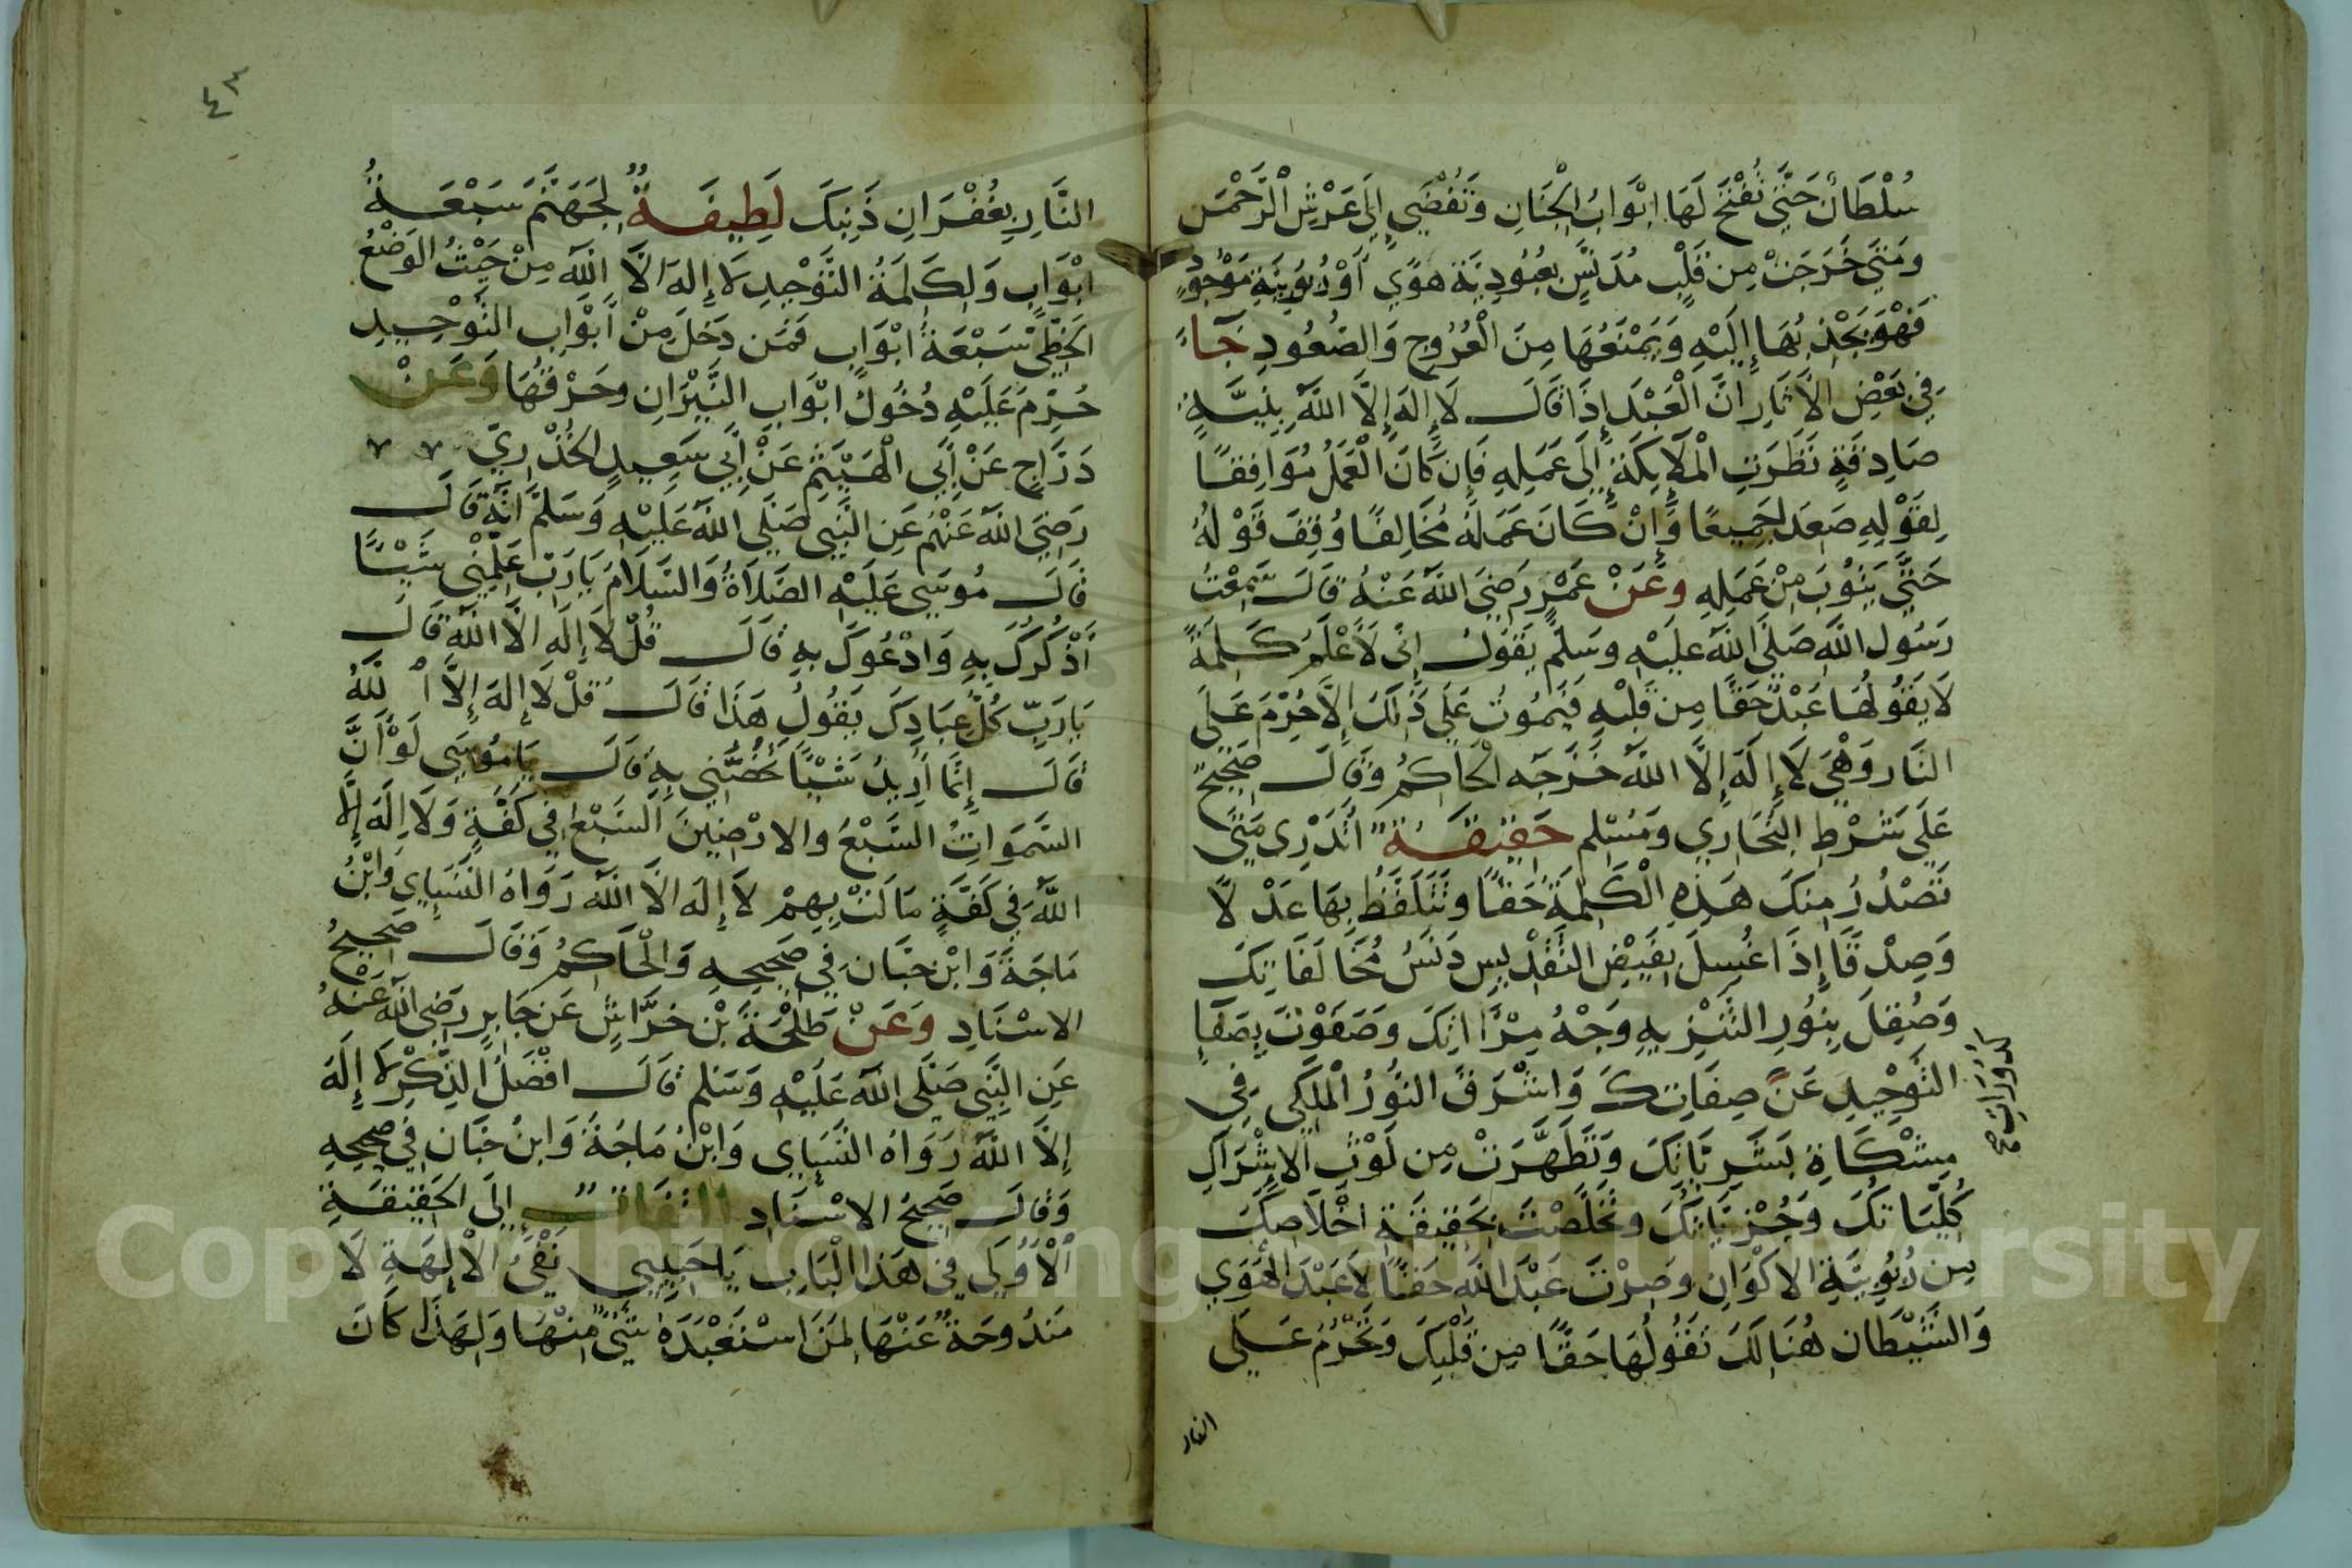 سُلْطَانٌ حَتَّى تُفْتَحَ لَهَا ابْوَابُ الْجِنَانِ وَتُفْضِي إِلَى عَرْشِ الرَّحْمَن
وَمَتَى خَرَجَتْ مِن قَلْبٍ مُدَنَّسٍ بِعُبُودِيَّةِ هَوًى أَوْ رُبُوبِيَّةِ مَوْجُودٍ
فَهْوَ يَجْذِبُهَا إِلَيْهِ وَيَمْنَعُهَا مِنَ الْعُرُوجِ وَالصُّعُودِ جَآءَ
فِي بَعْضِ الآثَارِ انَّ الْعَبْدَ إِذَا قَالَ لَا إِلَهَ إِلَّا اللَّهُ بِنِيَّةٍ
صَادِقَةٍ نَظَرَتِ الْمَلَايِكَةُ إِلَى عَمَلِهِ فَإِن كَانَ الْعَمَلُ مُوَافِقًا
لِقَوْلِهِ صَعَدَ جَمِيعًا وَإِنْ كَانَ عَمَلُهُ مُخَالِفًا وُقِفَ قَوْلُهُ
حَتَّى يَتُوبَ مِنْ عَمَلِهِ وَعَنْ عُمَرَ رَضِيَ اللَّهُ عَنْهُ قَالَ سَمِعْتُ
رَسُولَ اللَّهِ صَلَّى اللَّهُ عَلَيْهِ وَسَلَّم يَقُولُ إِنِّي لَأَعْلَمُ كَلِمَةً
لَا يَقُولُهَا عَبْدٌ حَقًّا مِن قَلْبِهِ فَيَمُوتُ عَلَى ذَلِكَ إِلَّا حُرِّمَ عَلَى
النَّار وَهْيَ لَا إِلَهَ إِلَّا اللَّهُ خَرَّجَه الْحَاكِمُ وَقَالَ صَحِيحٌ
عَلَى شَرْطِ البُخَارِي وَمُسْلِم حَقِيقَةٌ اتَدْرِي مَتَى
تَصْدُرُ مِنكَ هَذِهِ الْكَلِمَةُ حَقًّا وَتَتَلَفَّظُ بِهَا عَدْلًا
وَصِدْقًا إِذَا غُسِلَ بِفَيْضِ التَّقْدِيسِ دَنَسُ مُخَالَفَاتِكَ
وَصُقِلَ بِنُورِ التَّنْزِيهِ وَجْهُ مِرْآاتِكَ وَصَفَوْتَ بِصَفَاءِ
التَّوْحِيدِ عَنْ صِفَاتِكَ وَاشْرَقَ النُّورُ الْمَلَكِي فِي
كدورات صح
مِشْكَاةِ بَشَرِيَّاتِكَ وَتَطَهَّرَتْ مِن لَوْثِ الاشْرَاكِ
كُلِّيَّاتُكَ وَجُزْيِّيَاتُكَ وَتَخَلَّصْتَ بِحَقِيقَةِ اخْلَاصِكَ
مِن رُبُوبِيَّةِ الاكْوَانِ وَصِرْتَ عَبْدَ اللَّهِ حَقًّا لَا عَبْدَ الْهَوَى
وَالشَّيْطَان هُنَالِكَ تَقُولُهَا حَقًّا مِن قَلْبِكَ وَتُحَرَّمُ عَلَى
النار
٤٣
النَّارِ بِغُفْرَانِ ذَنبِكَ لَطِيفَةٌ لِجَهَنَّمَ سَبْعَةُ
ابْوَابٍ وَلِكَلِمَةِ التَّوْحِيدِ لَا إِلَهَ الَّا اللَّهُ مِنْ حَيْثُ الْوَضْعُ
الخَطِّي سَبْعَةُ ابْوَابٍ فَمَن دَخَلَ مِنْ أَبْوَابِ التَّوْحِيدِ
حُرِّمَ عَلَيْهِ دُخُولُ ابْوَابِ النِّيرَانِ وَحَرْقَتُهَا وَعَنْ
دَرَّاجٍ عَنْ أَبِي الْهَيْثَمِ عَنْ أَبِي سَعِيدٍ الخُدْرِيِّ
رَضِيَ اللَّهُ عَنْهُم عَنِ النَّبِيِّ صَلَّى اللَّهُ عَلَيْهِ وَسَلَّمَ انَّهُ قَالَ
قَالَ مُوسَى عَلَيْهِ الصَّلَاةُ وَالسَّلَامُ يَا رَبِّ عَلِّمْنِي شَيْئًا
أَذْكُرُكَ بِهِ وَادْعُوكَ بِهِ قَالَ قُلْ لَا إِلَهَ الَّا اللَّهُ قَالَ
يَا رَبِّ كُلُّ عِبَادِكَ يَقُولُ هَذَا قَالَ قُلْ لَا إِلَهَ إِلَّا اللَّهُ
قَالَ إِنَّمَا أُرِيدُ شَيْئًا تَخُصُّنِي بِهِ قَالَ يَا مُوسَى لَوْ أَنَّ
السَّمَوَاتِ السَّبْعُ وَالارْضِينَ السَّبْعَ فِي كَفَّةٍ وَلَا إِلَهَ إِلَّا
اللَّهُ فِي كَفَّةٍ مَالَتْ بِهِمْ لَا إِلَهَ الَّا اللَّهُ رَوَاهُ النَّسَاءِي وَابْنُ
مَاجَةَ وَابْنُ حِبَّانَ فِي صَحِيحِهِ وَالْحَاكِمُ وَقَالَ صَحِيحُ
الاسْنَادِ وَعَنْ طَلْحَةَ بْنِ خَرَّاشٍ عَن جَابِرٍ رَضِيَ اللَّهُ عَنْهُ
عَنِ النَّبِيِّ صَلَّى اللَّهُ عَلَيْهِ وَسَلم قَالَ افْضَلُ الذِّكْرِ لَا إِلَهَ
إِلَّا اللَّهُ رَوَاهُ النَّسَاءِي وَابْنُ مَاجَةَ وَابنُ حِبَّان فِي صَحِيحِهِ
وَقَالَ صَحِيحُ الاسْنَادِ التفات إِلَى الحَقِيقَةِ
الْأُولَى فِي هَذَا الْبَابِ يَا حَبِيبِي نَفْيُ الْإِلَهَةِ لَا
مَندُوحَةٌ عَنْهَا لِمَنِ اسْتَعْبَدَهُ شَيْءٌ مِنْهَا وَلِهَذَا كَانَ
Copyright © King Saud University